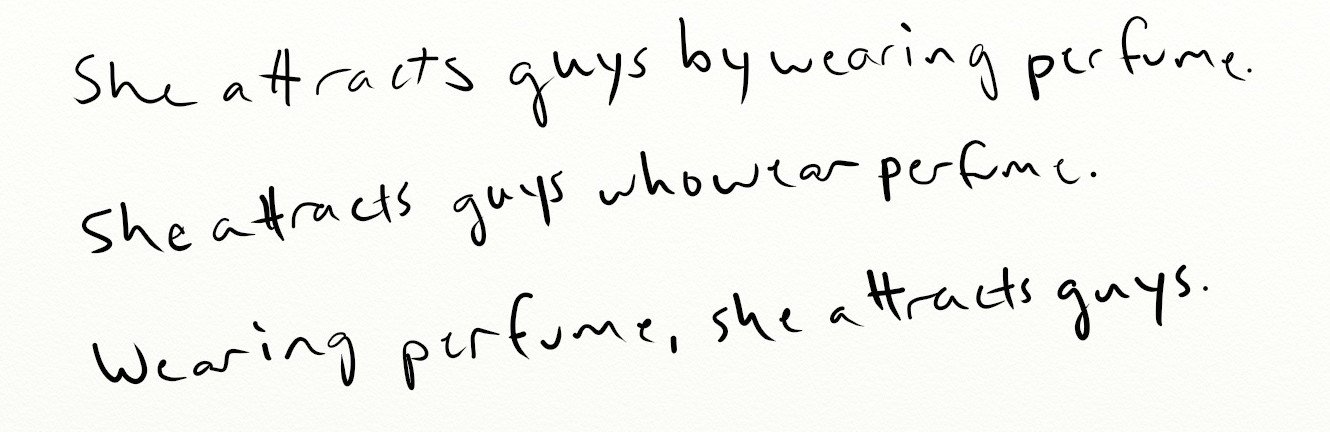 She attracts guys by wearing perfume.
She attracts guys who wear perfume.
Wearing perfume, she attracts guys.